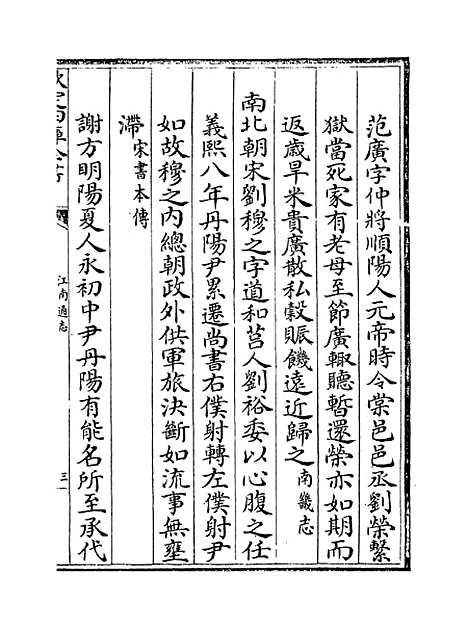 范廣字仲將順陽人元帝時令棠邑邑丞劉榮繫
獄當死家有老母至節廣輒聽暫還榮亦如期而
返歲旱米貴廣散私穀賑饑遠近歸之南畿志
南北朝宋劉穆之字道和莒人劉裕委以心腹之任
義熙八年丹陽尹累遷尚書右僕射轉左僕射尹
如故穆之內總朝政外供軍旅決斷如流事無壅
滯宋書本傳
謝方明陽夏人永初中尹丹陽有能名所至承代
欽定四庫全書
江南通志